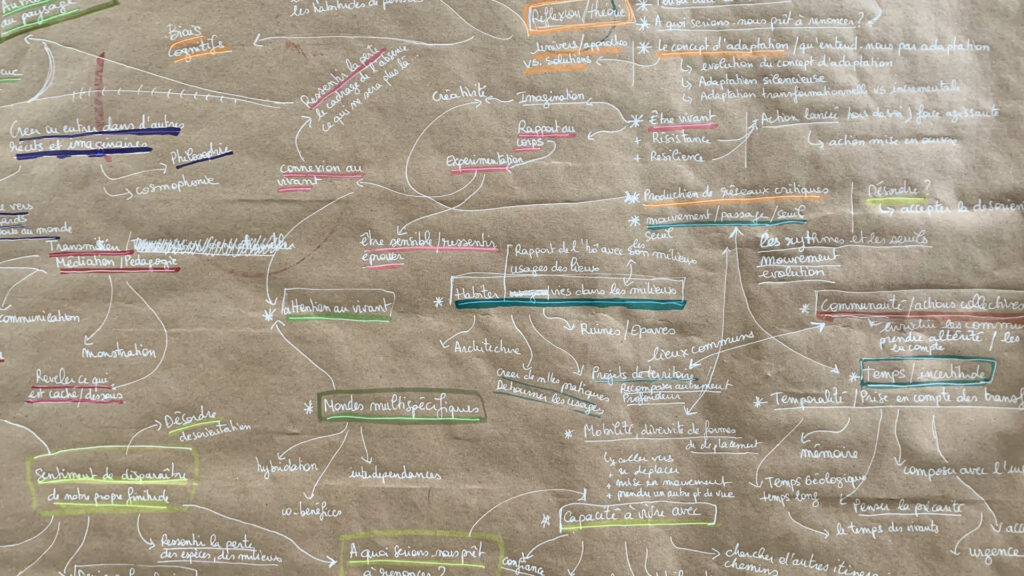 du paysage
Biais
cognitifs
Ressentir la perte
le cadrage de l'absence
ce qui ne sera plus là
Créer ou entrer dans d'autres
récits et imaginaires
Philosophie
cosmophonie
connexion au
vivant
Créativité
Imagination
Rapport au
corps
Expérimentation
Réflexion / théorie
univers / approches
vs solutions
A quoi serions-nous prêt à renoncer ?
* Le concept d'adaptation / qu'entend-nous par adaptation
évolution du concept d'adaptation
Adaptation silencieuse
Adaptation transformationnelle vs incrémentale
* Être vivant
+ Résistance
+ Résilience
action mise en œuvre
* Production de réseaux critiques
* mouvement / passage / seuil
seuil
Désordre ?
les rythmes et les seuils
mouvement
évolution
au monde
Transmettre /
Médiation / Pédagogie
communication
monstration
Révéler ce qui
est caché / dessous
Être sensible / ressentir
éprouver
* attention au vivant
Rapport de l'
usages des lieux
* Habiter
vies dans les milieux
Architecture
Ruines / Epaves
créer de nlles pratiques
Détourner les usages
Projets de territoire
Recomposer autrement
Profondeur
lieux communs
* Communauté / actions collectives
prendre altérité / les
en compte
* Temps / incertitude
* Temporalité / Prise en compte des
mémoire
Temps Géologique
temps long
le temps des vivants
Penser la précarité
composer avec
urgence
* Mondes multispécifiques
hybridation
co-bénéfices
* Mobilité, diversité de formes
de déplacement
aller vers
se déplacer
+ mise en mouvement
+ prendre un autre pt de vue
* Capacité à vivre avec
confiance
chercher d'autres
chemins
Désordre
Sentiment de disparaître
de notre propre finitude
Ressentir la perte
des espèces, des milieux
A quoi serions-nous prêt
à renoncer ?